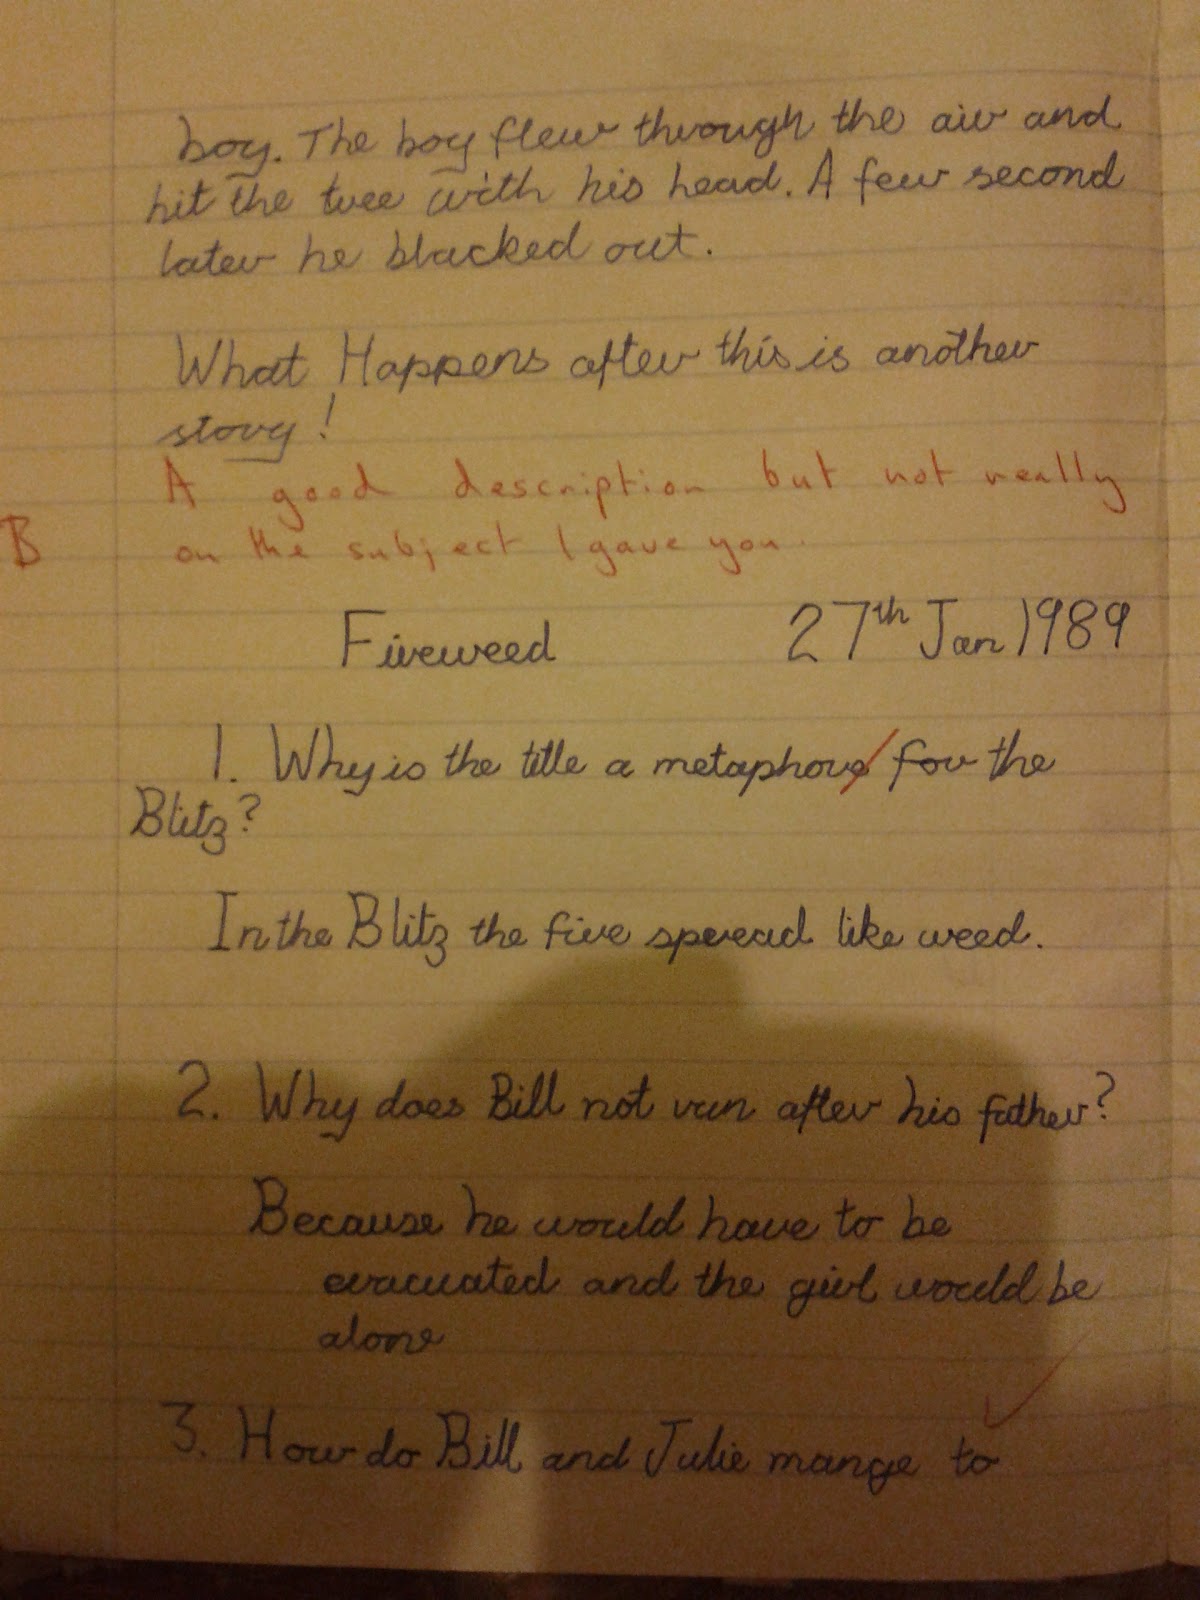 boy. The boy flew through the air and
hit the tree with his head. A few second
later he blacked out.
What Happens after this is another
story!
A good description but not really
B on the subject I gave you.
Fireweed 27th Jan 1989
1. Why is the title a metaphore for the
Blitz?
In the Blitz the fire spread like weed.
2. Why does Bill not run after his father?
Because he would have to be
evacuated and the girl would be
alone
3. How do Bill and Julie mange to